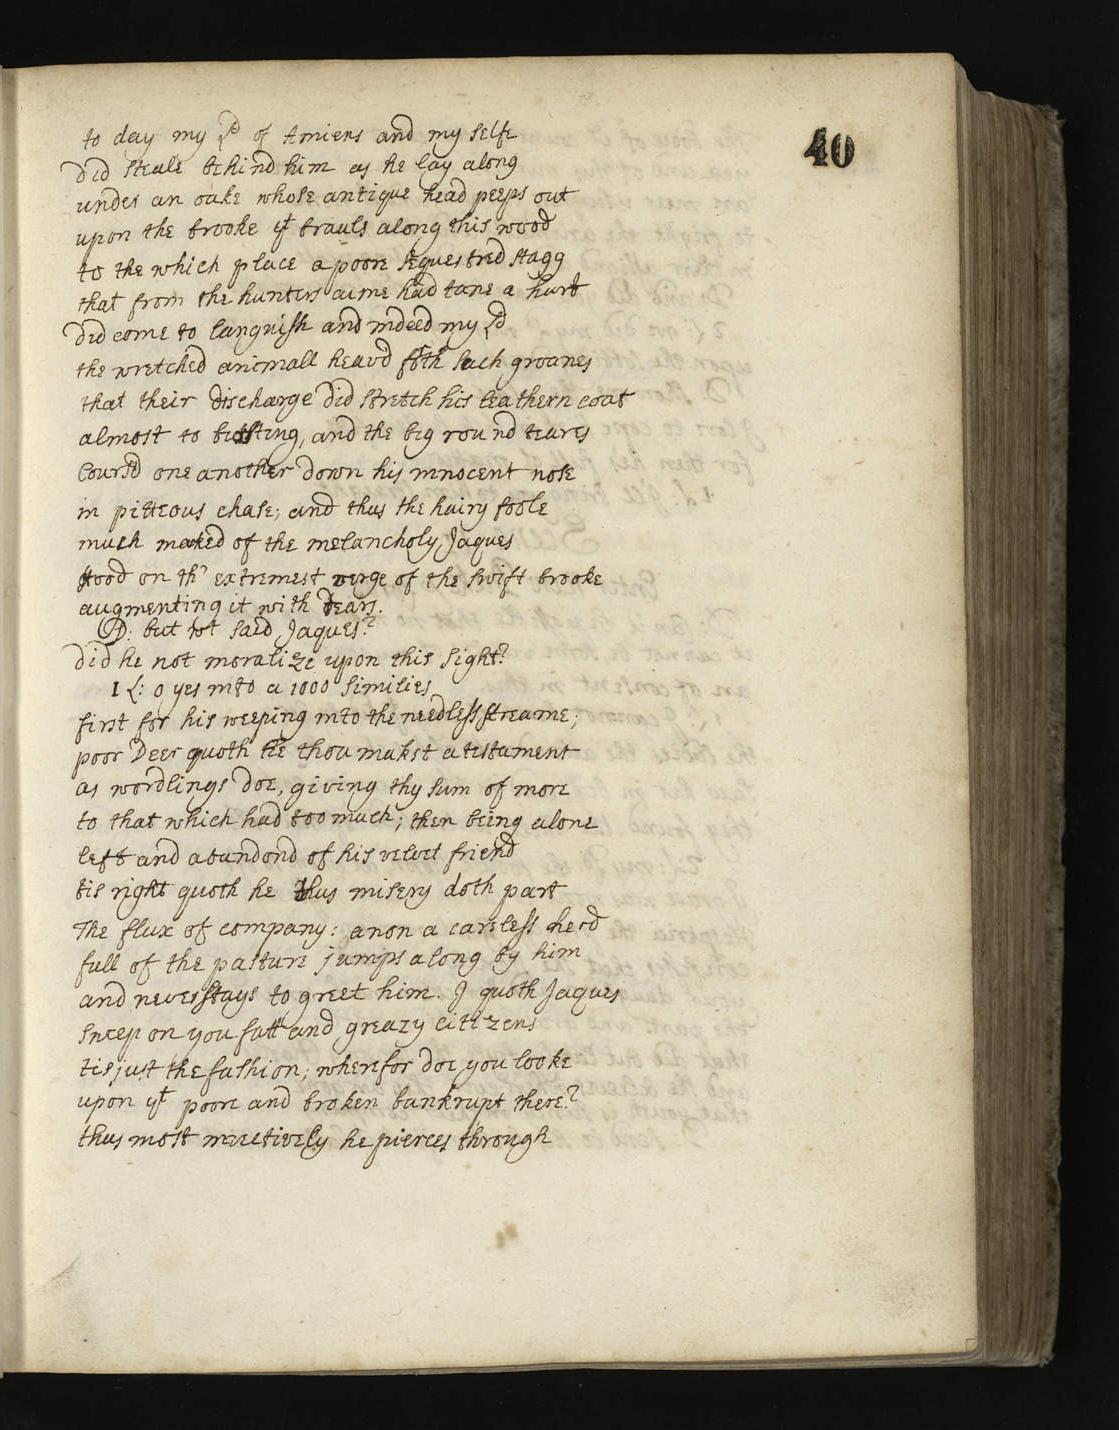 40
to day my Ld of Amiens and my selfe
Did steale behind him as he lay along
under an oake whose antique head peeps out
upon the brooke yt brauls along this wood
to the which place a poore sequestred stagg
that from the hunters aime had tane a hurt
Did come to languish and indeed my Ld
the wretched animall heavd foth such groanes
that their discharge did stretch his leathern coat
almost to bursting, and the big round teares
Coursd one another down his innocent nose
in pitteous chase; and thus the hairy foole
much marked of the melancholy Jaques
stood on th' extremest verge of the swift brooke
augmenting it with tears.
D: but wt said Jaques?
Did he not moralize upon this sight?
1 L: o yes into a 1000 similies
first for his weeping into the needless streame;
poor Deer quoth he thou makst a testament
as wordlings doe, giving thy sum of more
to that which had too much; then being alone
left and abandond of his velvet friend
tis right quoth he thus misery doth part
The flux of company: anon a careless herd
full of the pasture jumps along by him
and never stays to greet him. I quoth Jaques
sweep on you fatt and greazy cittizens
tis just the fashion; wherefor doe you looke
upon yt poore and broken bankrupt there?
thus most invectively he pierces through